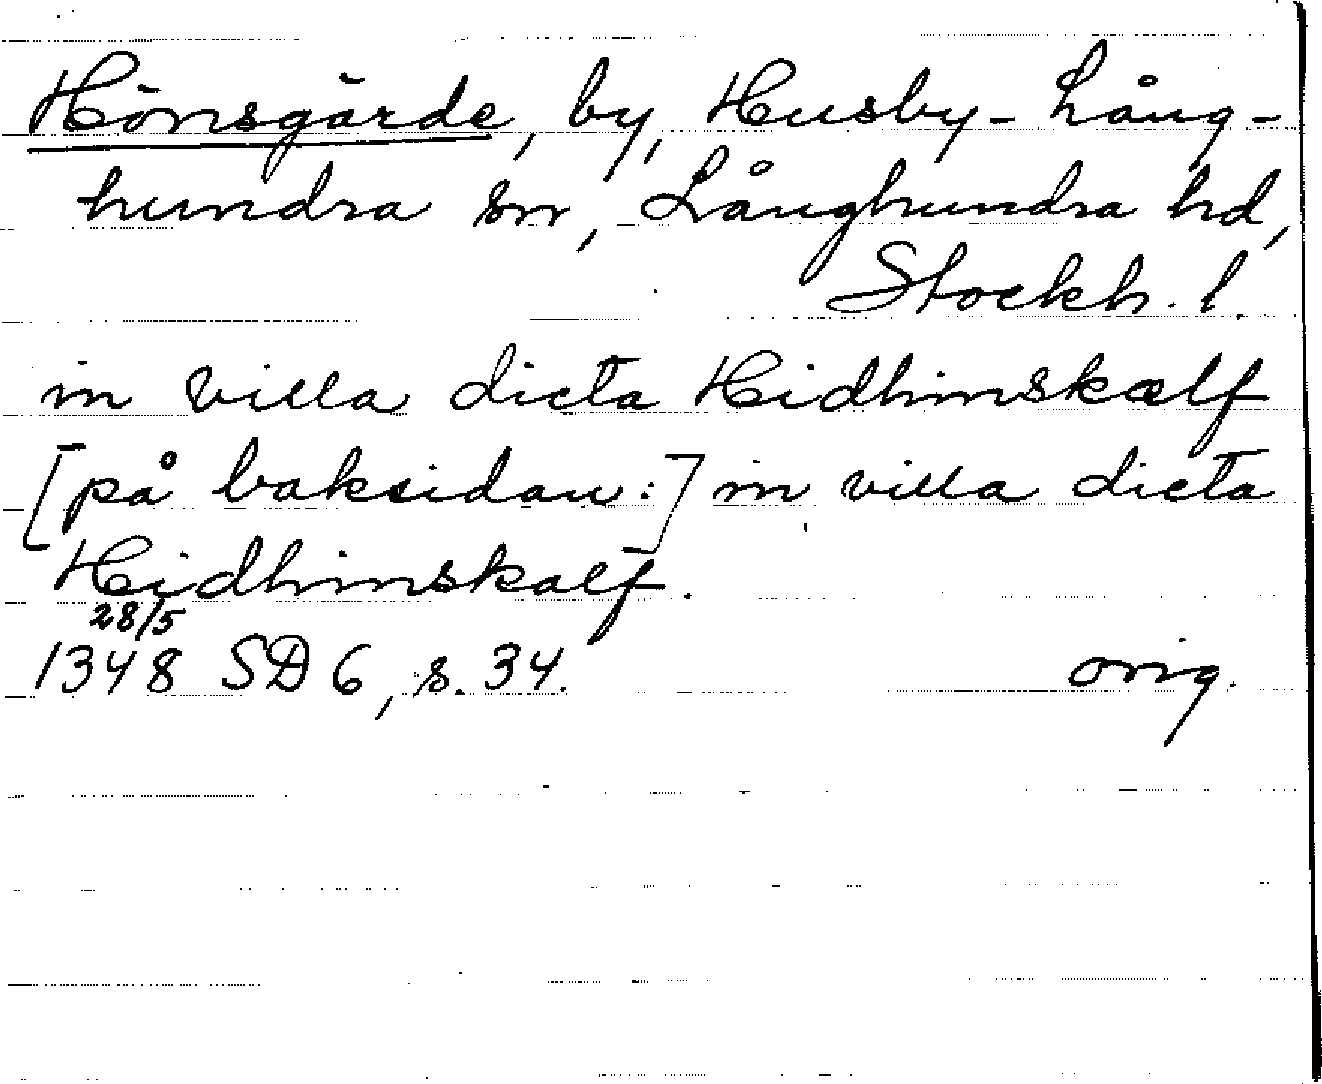 Hönsgärde, by, Husby-Lång-
hundra sn, Långhundra hd,
Stockh. l.
in villa dicta Hidhinskælf
[på baksidan:] in villa dicta
Hidhinskalf.
28/5
1348 SD 6, s. 34. orig.